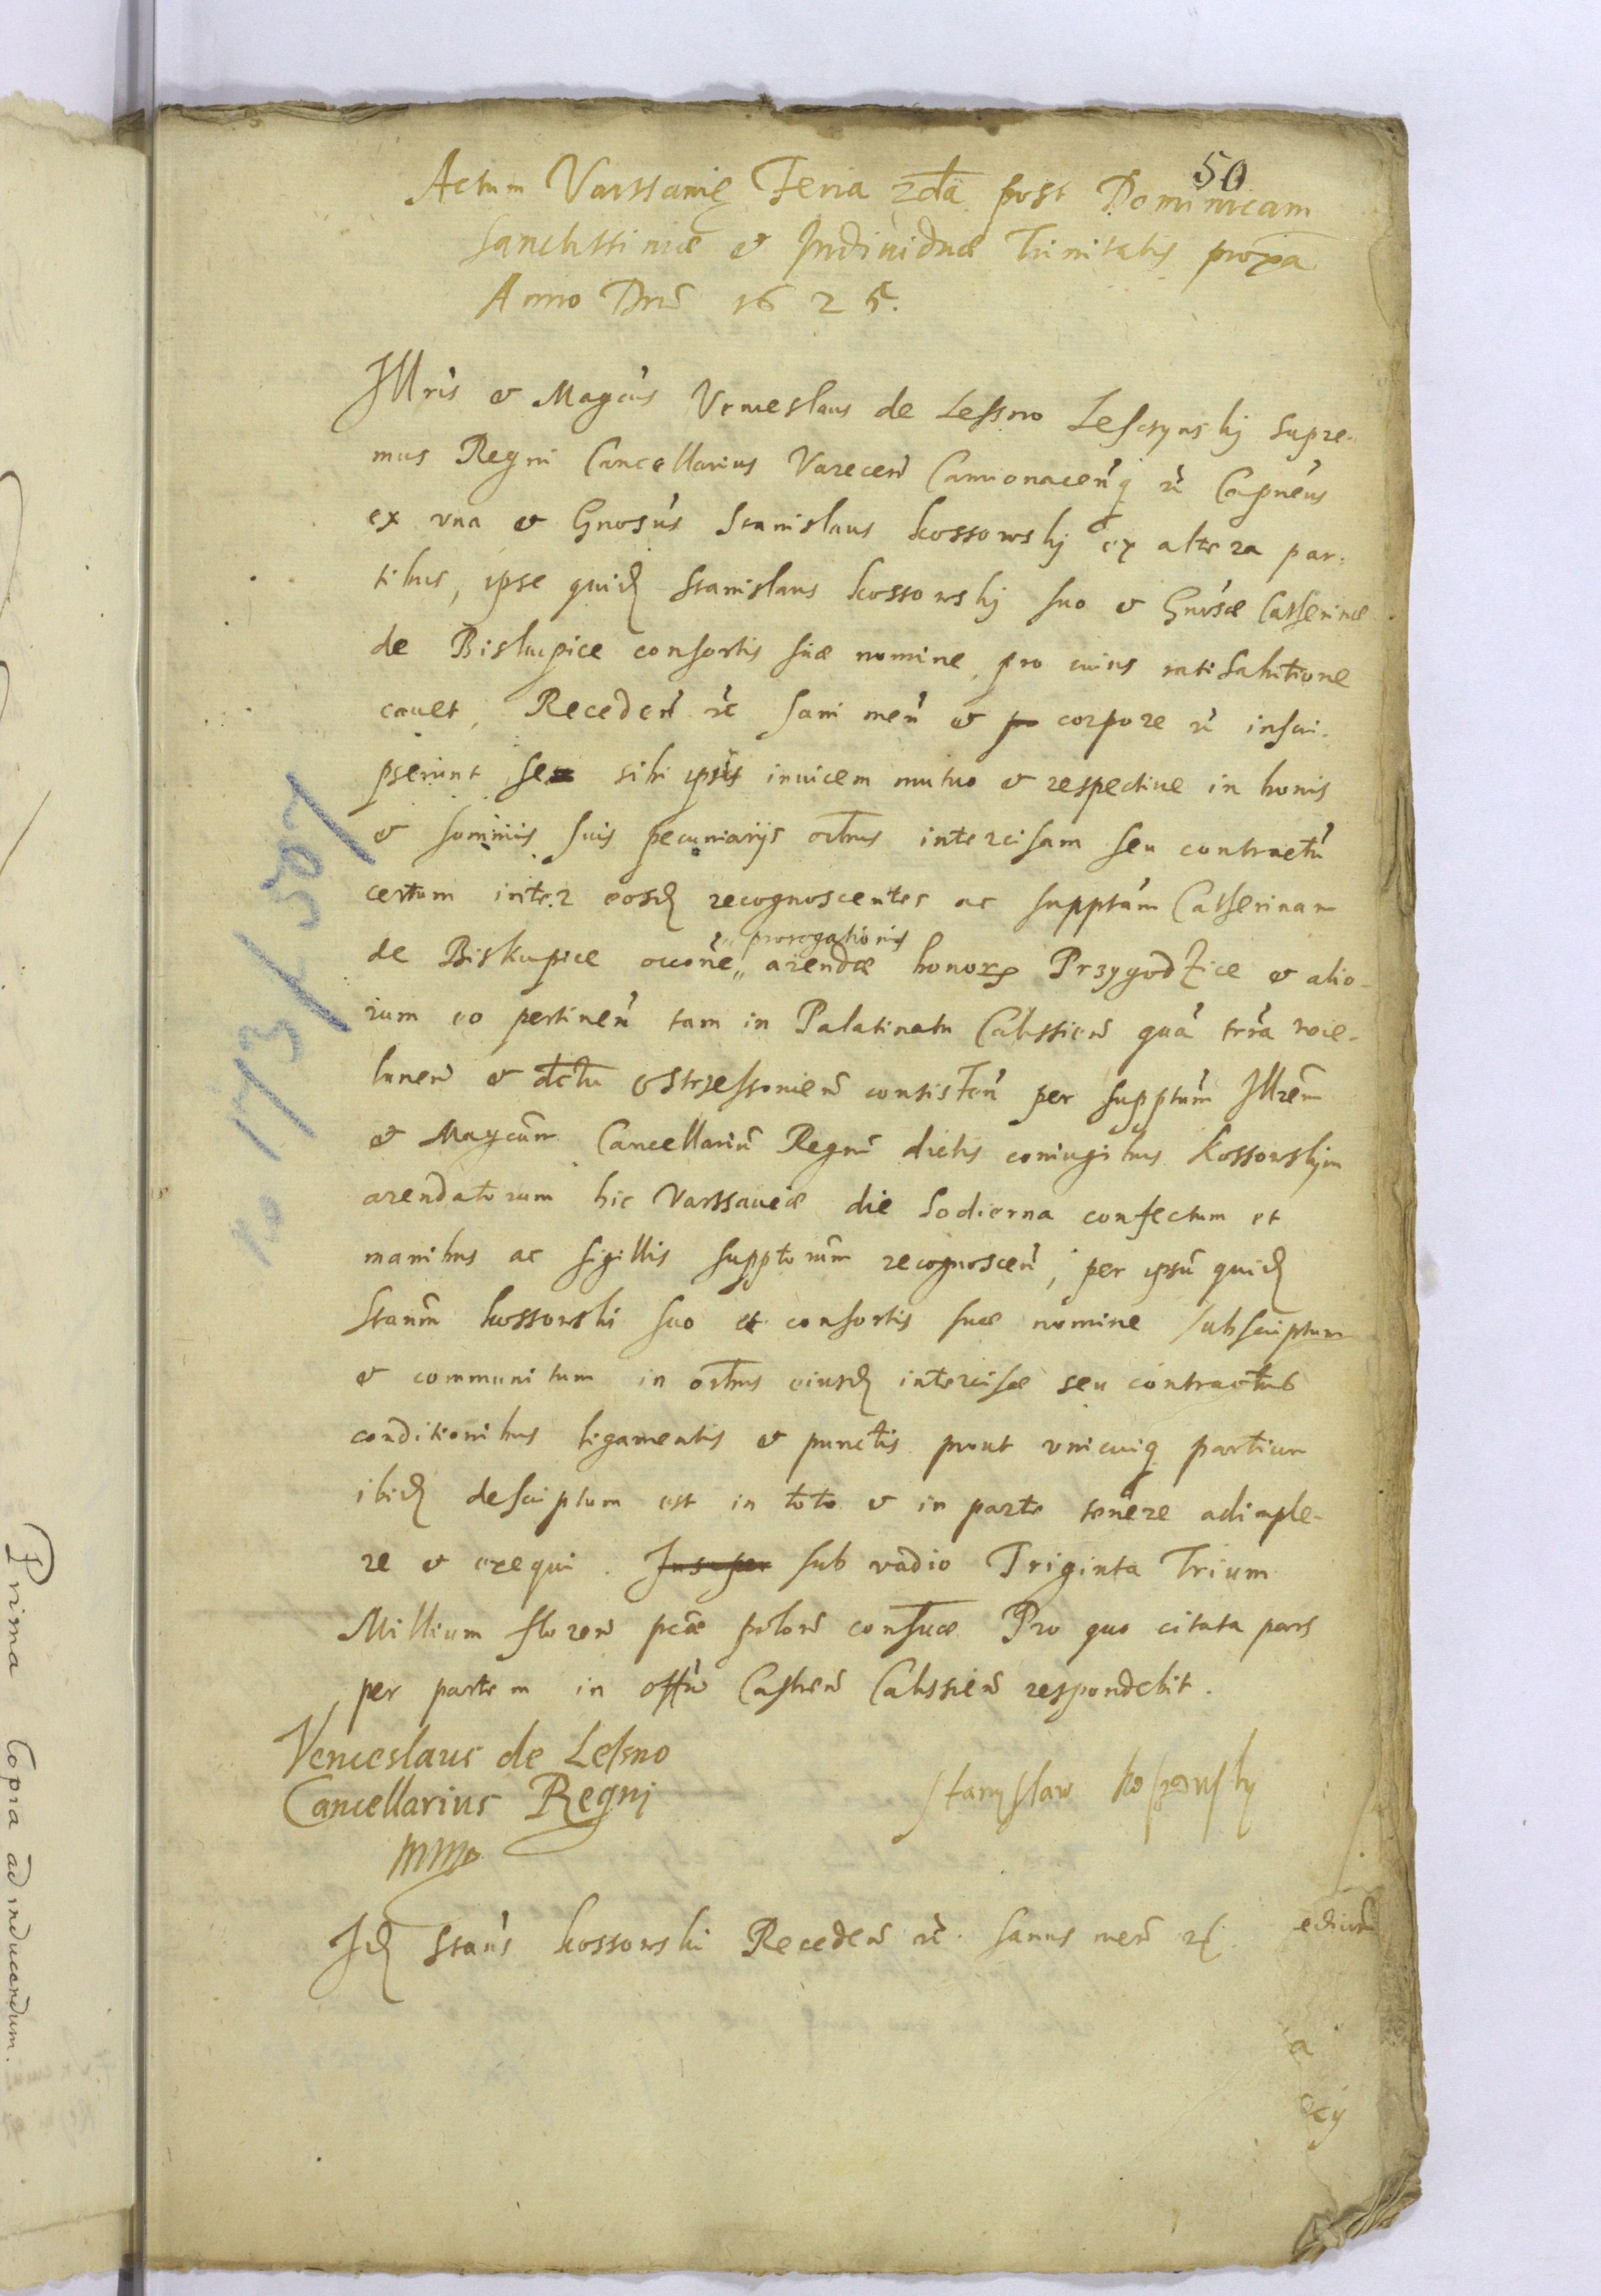 50
Actum Varssaviæ Feria 2dã post Dominicam
Sanctissimæ et Individuæ Trinitatis proxã
Anno Dni 1625.
Illris et Magcus Venceslaus de Lessno Lesczynskj Supre-
mus Regni Cancellarius Varecen Camionacenq rc Capneus
ex vna et Gnosus Stanislaus Kossowskj ex altera par-
tibus, ipse quid Stanislaus Kossowskj suo et Gnosæ Catherinæ
de Biskupice consortis suæ nomine, pro cuius ratihabitione
cavet, Receden rc sani men et corpore rc inscri-
pserunt se sibi ipsis invicem mutuo et respective in bonis
et summis suis pecuniarijs oibus intercisam seu contractu
certum inter eosd recognoscentes ac supptam Catherinam
prorogationis
de Biskupice occone,, arendæ bonorum Przygodzice et alio-
rum eo pertinen tam in Palatinatu Calissien quã trra Wie-
lunen et dctu Ostrzessovien consisten per supptum Illrem
et Magcum Cancellariu Regni dictis coniugibus Kossowskim
arendatorum hic Varssaviæ die hodierna confectum et
manibus ac sigillis supptorum recognoscen, per ipsu quid
Stanm Kossowski suo et consortis suæ nomine subscriptum
et communitum in oibus eiusd intercisæ seu contractus
conditionibus ligamentis et punctis prout vnicuiq partium
ibid descriptum est in toto et in parte tenere adimple-
re et exequi. Insuper sub vadio Triginta Trium
Millium floren pcæ polon consuæ Pro quo citata pars
per partem in offo Castren Calissien respondebit.
Venceslaus de Lesno
Cancellarius Regnj
mmp
Stanyslaw Kossowsky
Id Stans Kossowski Receden rc. sanus men rc.
Prima Copia ad inducendum.